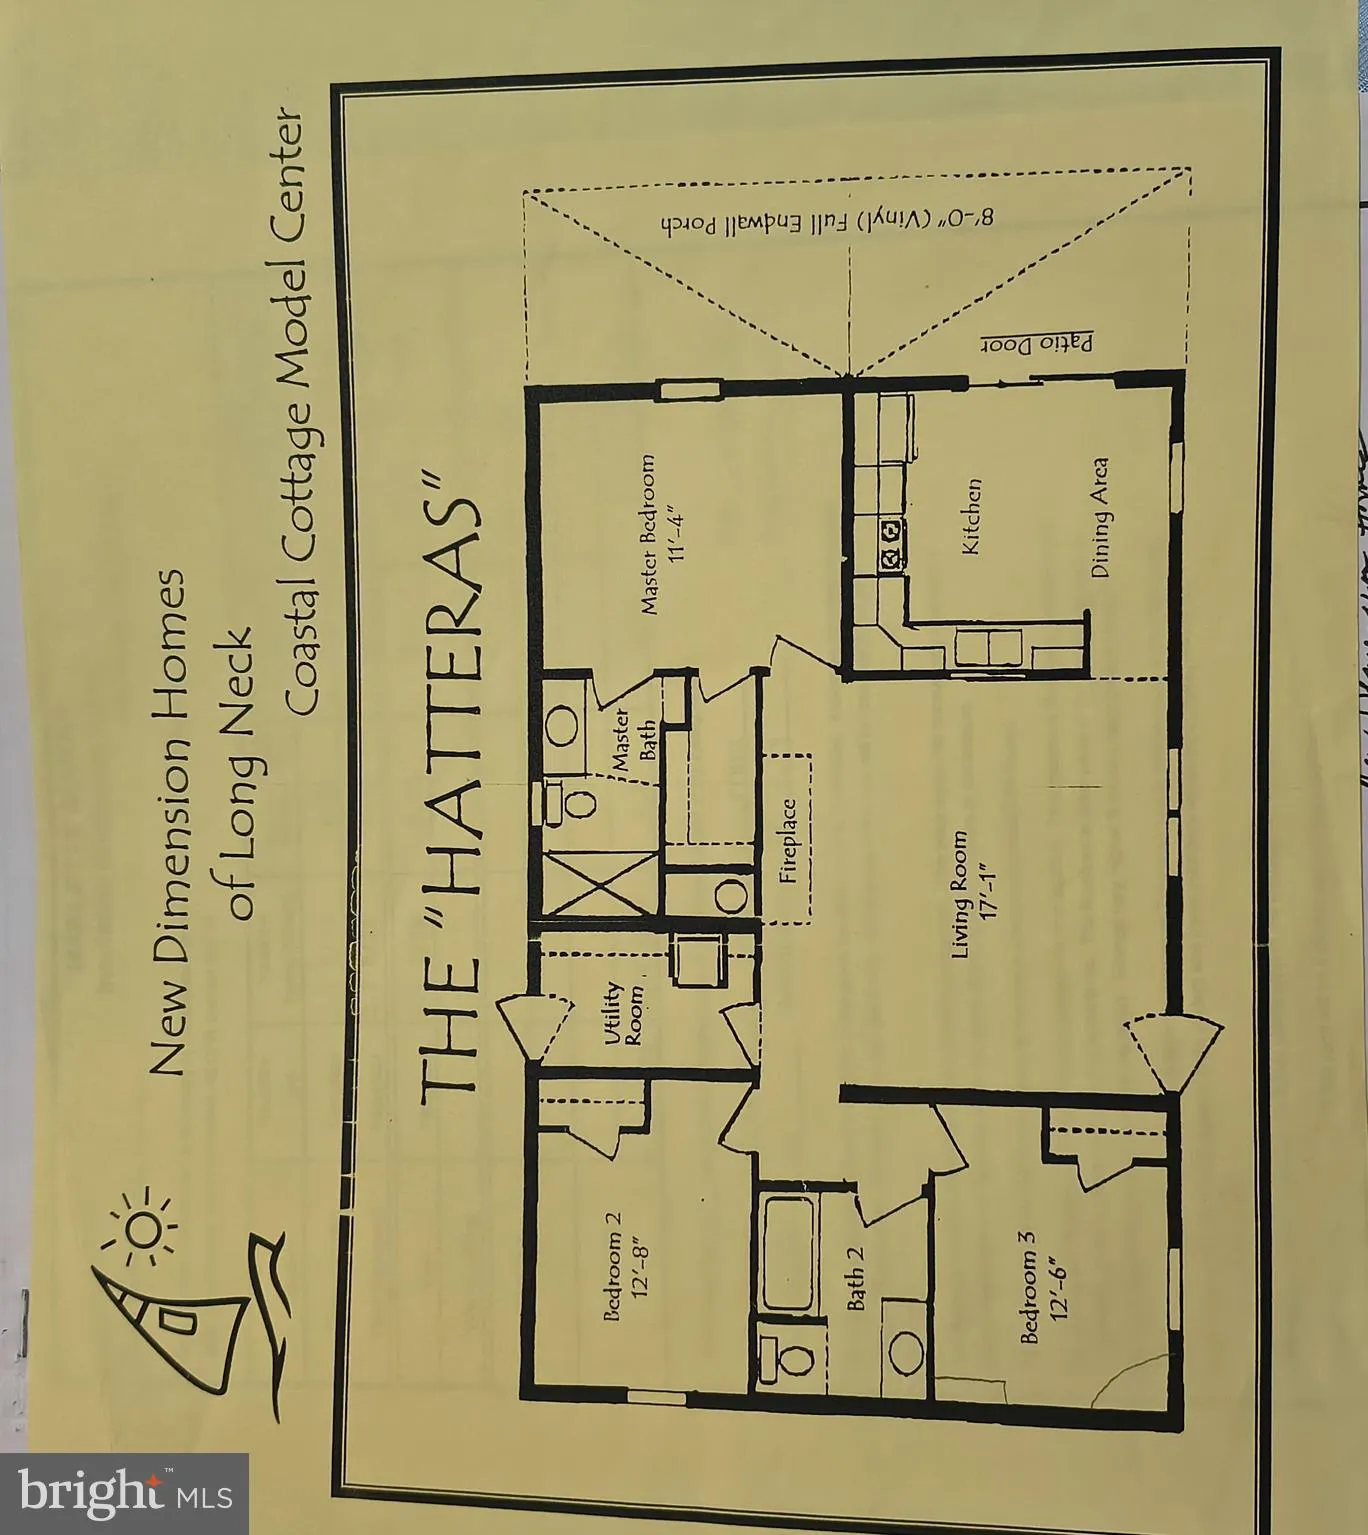 New Dimension Homes
of Long Neck
Coastal Cottage Model Center
THE "HATTERAS"
8'-0" (Vinyl) Full Endwall Porch
Patio Door
Master Bedroom
11'-4"
Kitchen
Dining Area
Master
Bath
Fireplace
Living Room
17'-1"
Utility
Room
Bedroom 2
12'-8"
Bath 2
Bedroom 3
12'-6"
bright™ MLS